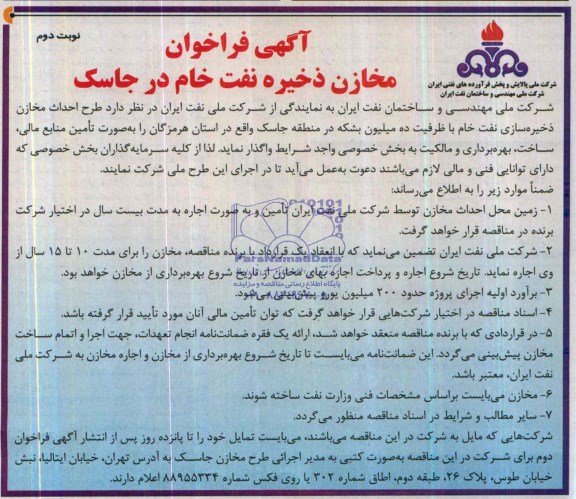 نوبت دوم
آگهی فراخوان
مخازن ذخیره نفت خام در جاسک
شرکت ملی پالایش و پخش فرآورده های نفتی ایران
شرکت ملی مهندسی و ساختمان نفت ایران
شرکت ملی مهندسی و ساختمان نفت ایران به نمایندگی از شرکت ملی نفت ایران در نظر دارد طرح احداث مخازن
ذخیره‌سازی نفت خام با ظرفیت ده میلیون بشکه در منطقه جاسک واقع در استان هرمزگان را به‌صورت تأمین منابع مالی،
ساخت، بهره‌برداری و مالکیت به بخش خصوصی واجد شرایط واگذار نماید. لذا از کلیه سرمایه‌گذاران بخش خصوصی که
دارای توانایی فنی و مالی لازم می‌باشند دعوت به‌عمل می‌آید تا در اجرای این طرح ملی شرکت نمایند.
ضمناً موارد زیر را به اطلاع می‌رساند:
۱- زمین محل احداث مخازن توسط شرکت ملی نفت ایران تأمین و به صورت اجاره به مدت بیست سال در اختیار شرکت
برنده در مناقصه قرار خواهد گرفت.
۲- شرکت ملی نفت ایران تضمین می‌نماید که با انعقاد یک قرارداد با برنده مناقصه، مخازن را برای مدت ۱۰ تا ۱۵ سال از
وی اجاره نماید. تاریخ شروع اجاره و پرداخت اجاره بهای مخازن از تاریخ شروع بهره‌برداری از مخازن خواهد بود.
۳- برآورد اولیه اجرای پروژه حدود ۲۰۰ میلیون یورو پیش‌بینی می‌شود.
۴- اسناد مناقصه در اختیار شرکت‌هایی قرار خواهد گرفت که توان تأمین مالی آنان مورد تأیید قرار گرفته باشد.
۵- در قراردادی که با برنده مناقصه منعقد خواهد شد، ارائه یک فقره ضمانت‌نامه انجام تعهدات، جهت اجرا و اتمام ساخت
مخازن پیش‌بینی می‌گردد. این ضمانت‌نامه می‌بایست تا تاریخ شروع بهره‌برداری از مخازن و اجاره مخازن به شرکت ملی
نفت ایران، معتبر باشد.
۶- مخازن می‌بایست براساس مشخصات فنی وزارت نفت ساخته شوند.
۷- سایر مطالب و شرایط در اسناد مناقصه منظور می‌گردد.
شرکت‌هایی که مایل به شرکت در این مناقصه می‌باشند، می‌بایست تمایل خود را تا پانزده روز پس از انتشار آگهی فراخوان
دوم برای شرکت در این مناقصه به‌صورت کتبی به مدیر اجرائی طرح مخازن جاسک به آدرس تهران، خیابان ایتالیا، نبش
خیابان طوس، پلاک ۲۶، طبقه دوم، اطاق شماره ۳۰۲ یا روی فکس شماره ۸۸۹۵۵۳۳۴ اعلام دارند.
ParsNamadData
پایگاه اطلاع رسانی مناقصه و مزایده